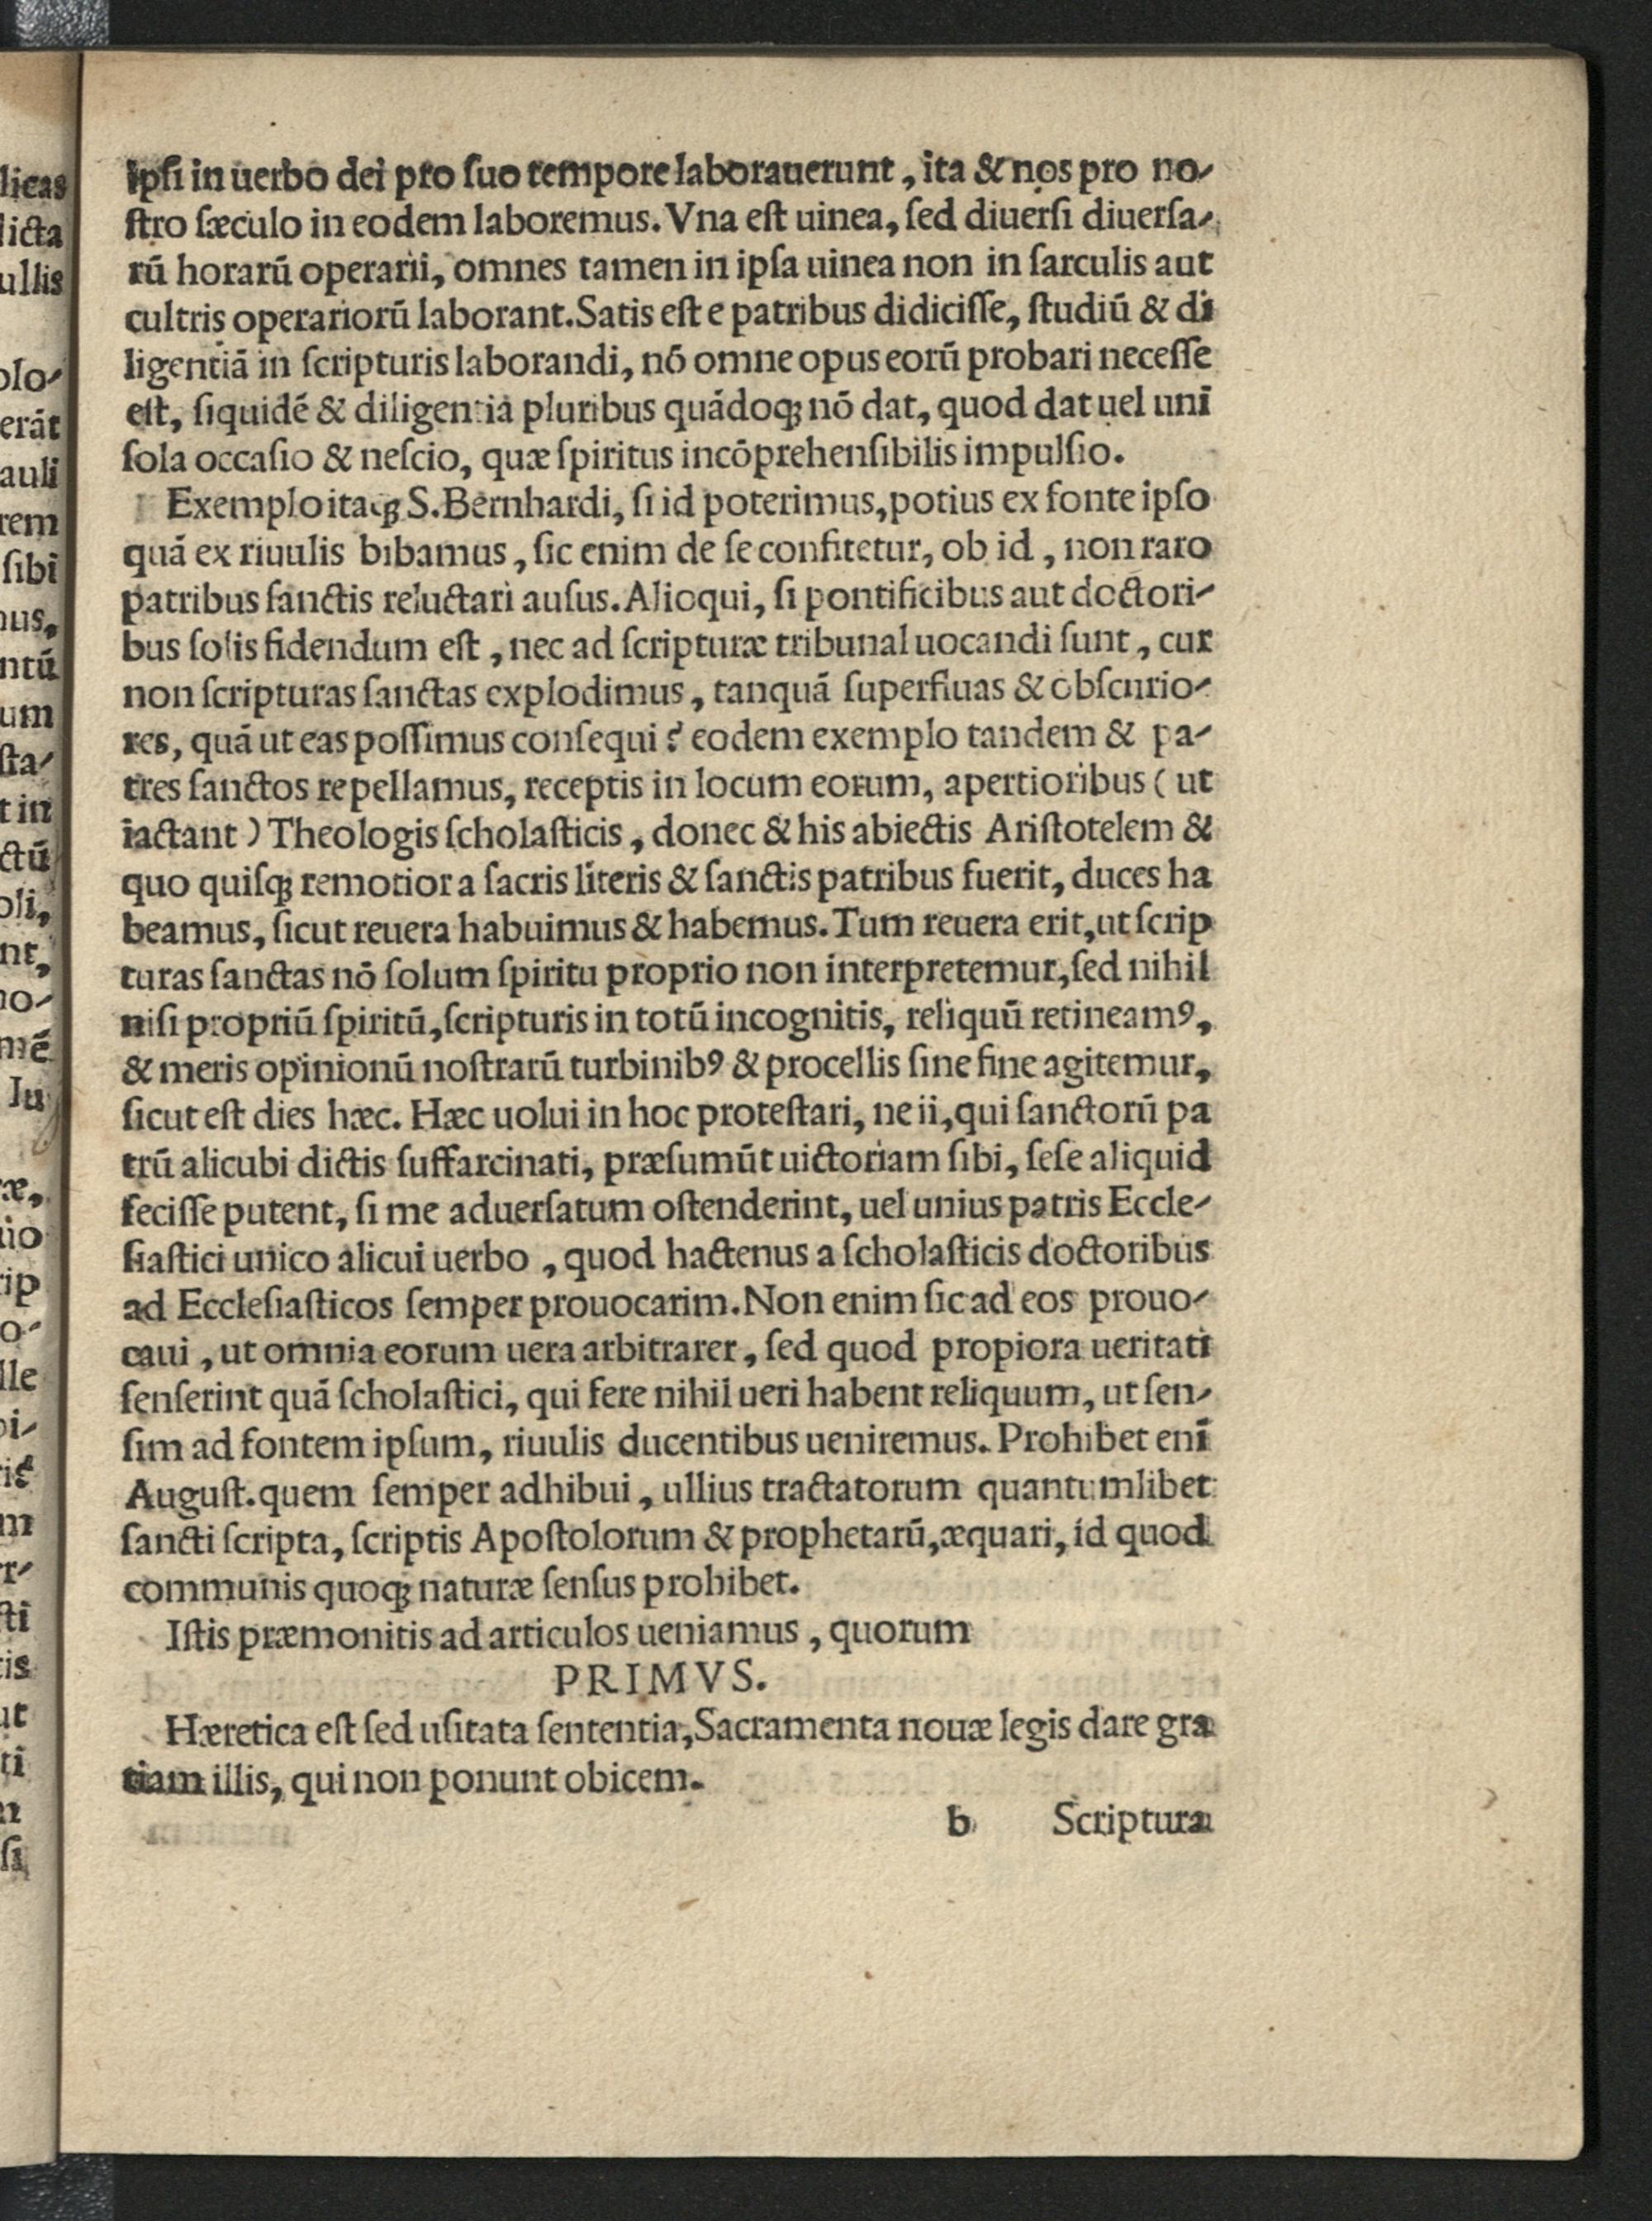 ipſi in uerbo dei pro ſuo tempore laborauerunt, ita & nos pro no-
ſtro ſæculo in eodem laboremus. Vna eſt uinea, ſed diuerſi diuerſa-
rū horarū operarii, omnes tamen in ipſa uinea non in ſarculis aut
cultris operariorū laborant. Satis eſt e patribus didiciſſe, ſtudiū & di
ligentiā in ſcripturis laborandi, nō omne opus eorū probari neceſſe
eſt, ſiquidē & diligentia pluribus quādoqꝫ nō dat, quod dat uel uni
ſola occaſio & neſcio, quæ ſpiritus incōprehenſibilis impulſio.
Exemplo itaqꝫ S. Bernhardi, ſi id poterimus, potius ex fonte ipſo
quā ex riuulis bibamus, ſic enim de ſe confitetur, ob id, non raro
patribus ſanctis reluctari auſus. Alioqui, ſi pontificibus aut doctori-
bus ſolis fidendum eſt, nec ad ſcripturæ tribunal uocandi ſunt, cur
non ſcripturas ſanctas explodimus, tanquā ſuperfluas & obſcurio-
res, quā ut eas poſſimus conſequi? eodem exemplo tandem & pa-
tres ſanctos repellamus, receptis in locum eorum, apertioribus (ut
iactant) Theologis ſcholaſticis, donec & his abiectis Ariſtotelem &
quo quiſqꝫ remotior a ſacris literis & ſanctis patribus fuerit, duces ha
beamus, ſicut reuera habuimus & habemus. Tum reuera erit, ut ſcrip
turas ſanctas nō ſolum ſpiritu proprio non interpretemur, ſed nihil
niſi propriū ſpiritū, ſcripturis in totū incognitis, reliquū retineamꝰ,
& meris opinionū noſtrarū turbinibꝰ & procellis ſine fine agitemur,
ſicut eſt dies hæc. Hæc uolui in hoc proteſtari, ne ii, qui ſanctorū pa
trū alicubi dictis ſuffarcinati, præſumūt uictoriam ſibi, ſeſe aliquid
feciſſe putent, ſi me aduerſatum oſtenderint, uel unius patris Eccle-
ſiaſtici unico alicui uerbo, quod hactenus a ſcholaſticis doctoribus
ad Eccleſiaſticos ſemper prouocarim. Non enim ſic ad eos prouo-
caui, ut omnia eorum uera arbitrarer, ſed quod propiora ueritati
ſenſerint quā ſcholaſtici, qui fere nihil ueri habent reliquum, ut ſen-
ſim ad fontem ipſum, riuulis ducentibus ueniremus. Prohibet enī
Auguſt. quem ſemper adhibui, ullius tractatorum quantumlibet
ſancti ſcripta, ſcriptis Apoſtolorum & prophetarū, æquari, id quod
communis quoqꝫ naturæ ſenſus prohibet.
Iſtis præmonitis ad articulos ueniamus, quorum
PRIMVS.
Hæretica eſt ſed uſitata ſententia, Sacramenta nouæ legis dare gra
tiam illis, qui non ponunt obicem.
b Scriptura